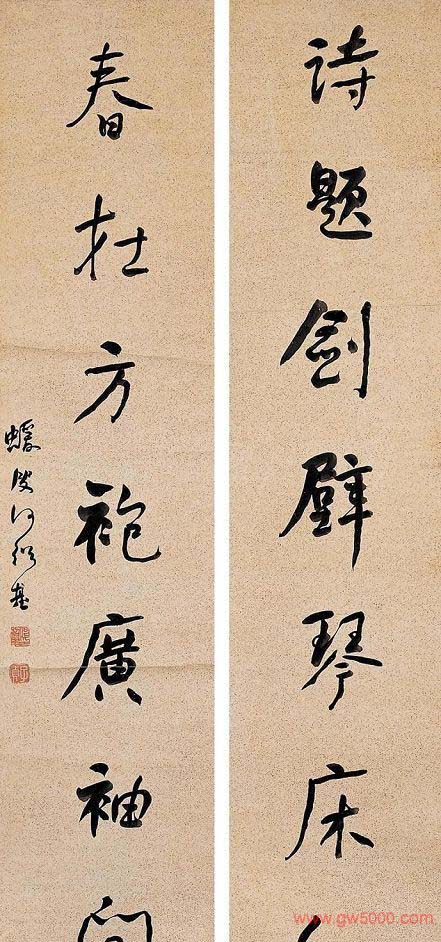 詩題劍壁琴床
春在方袍廣袖
蝯叟何紹基
www.gw5000.com